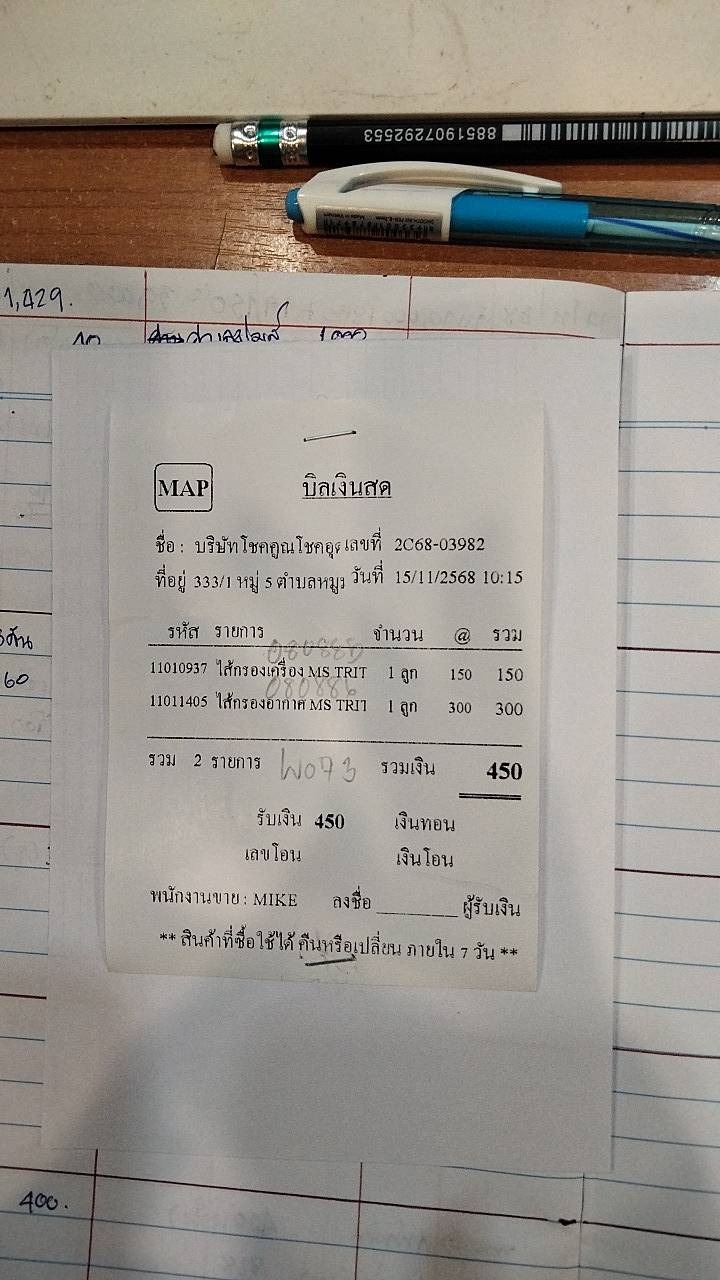 8851907292553
1,429.
MAP บิลเงินสด
ชื่อ : บริษัทโชคคูณโชคอุ เลขที่ 2C68-03982
ที่อยู่ 333/1 หมู่ 5 ตำบลหมู วันที่ 15/11/2568 10:15
รหัส รายการ จำนวน @ รวม
11010937 ไส้กรองเครื่อง MS TRIT 1 ลูก 150 150
11011405 ไส้กรองอากาศ MS TRIT 1 ลูก 300 300
60
รวม 2 รายการ รวมเงิน 450
รับเงิน 450 เงินทอน
เลขโอน เงินโอน
พนักงานขาย : MIKE ลงชื่อ ________ ผู้รับเงิน
** สินค้าที่ซื้อใช้ได้ คืนหรือเปลี่ยน ภายใน 7 วัน **
400.